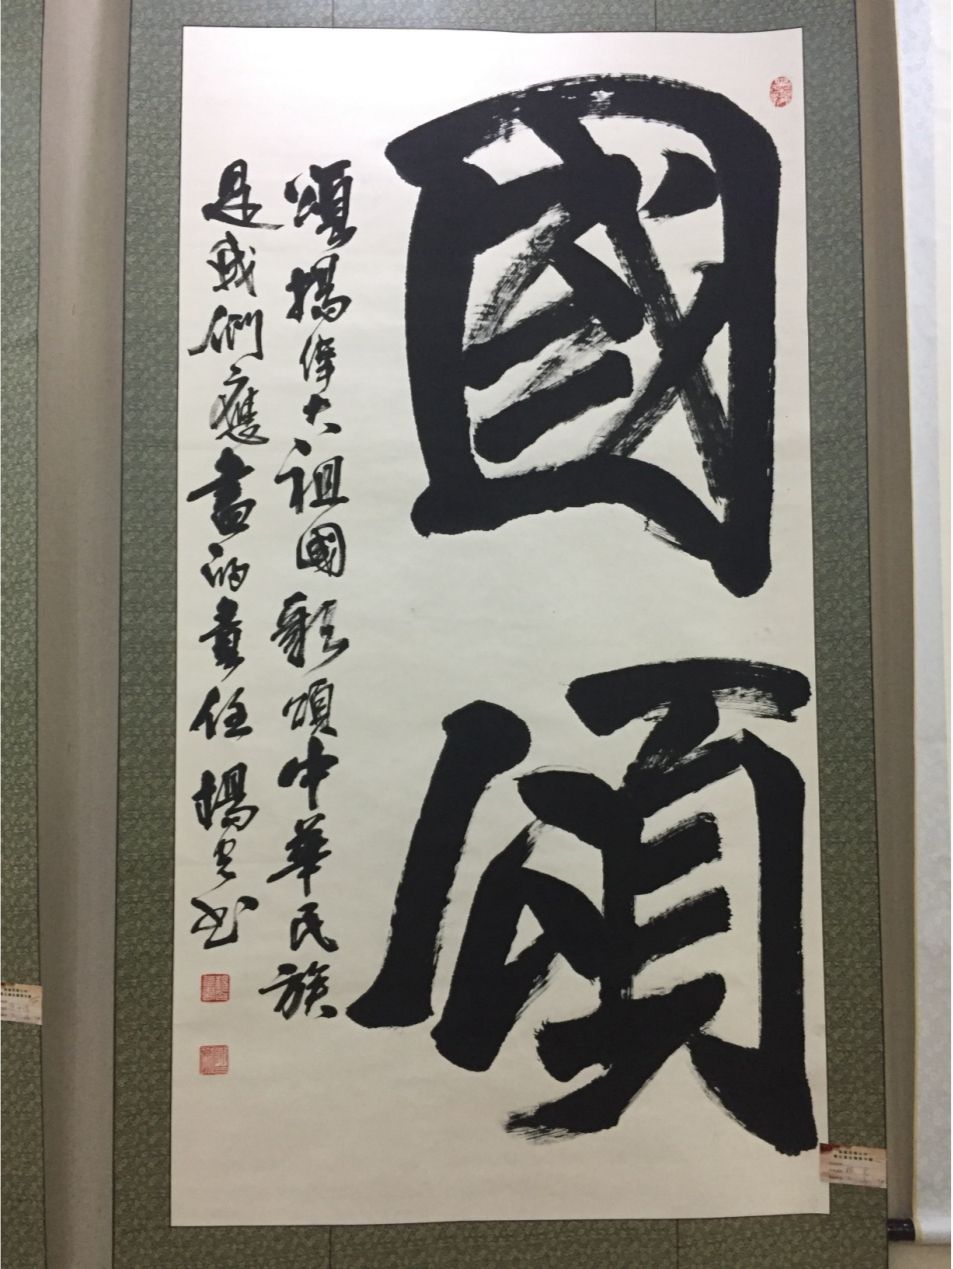 國頌
頌揚偉大祖國歌頌中華民族
是我們應盡的責任 楊
书